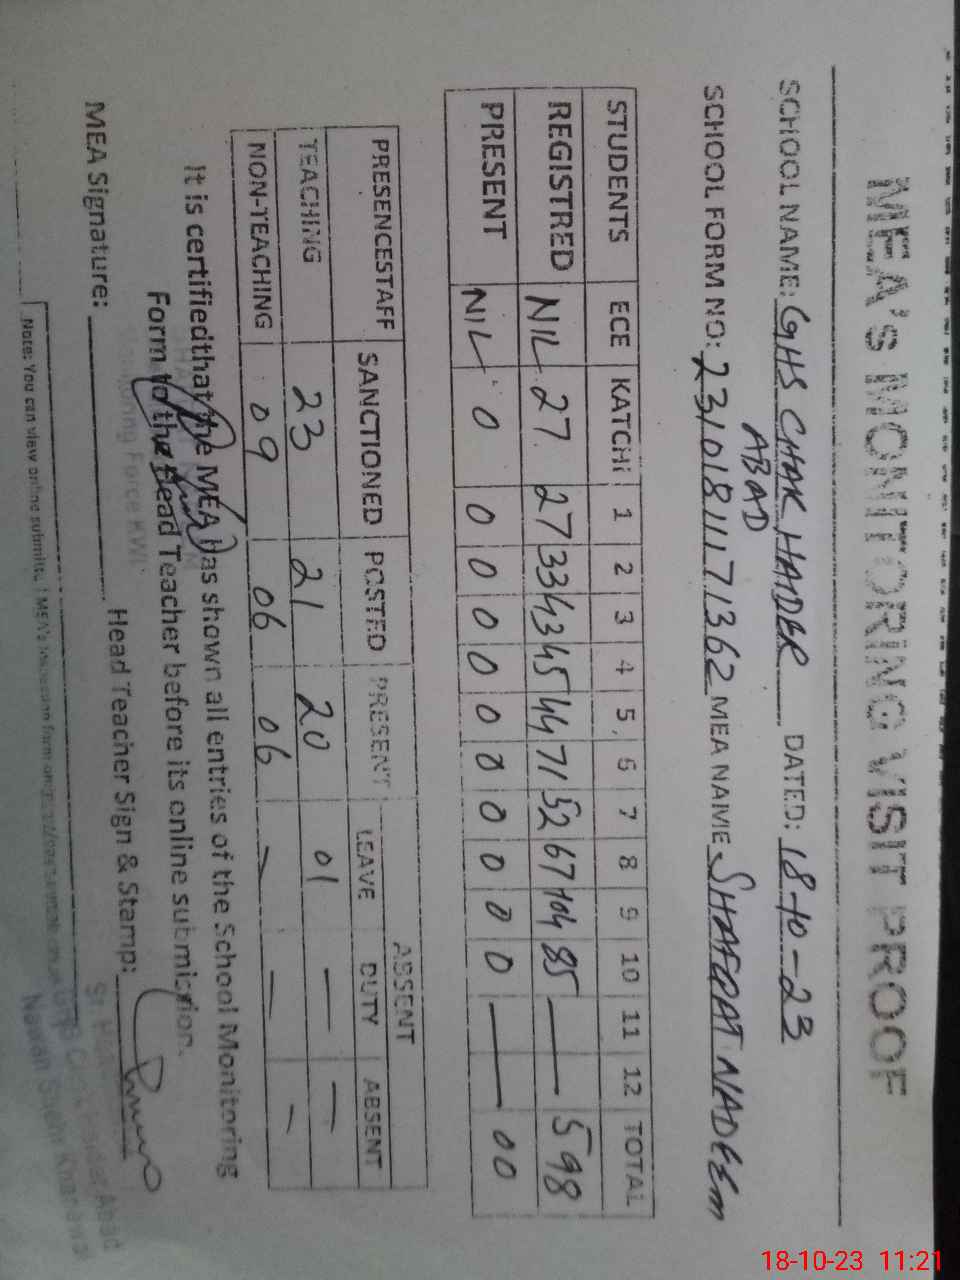 MEA's MONITORING VISIT PROOF
SCHOOL NAME: GHS CHAK HAIDER DATED: 18-10-23
ABAD
SCHOOL FORM NO: 231018111771362 MEA NAME SHAFQAT NADEEM
STUDENTS ECE KATCHI 1 2 3 4 5 6 7 8 9 10 11 12 TOTAL
REGISTRED NIL 27 27 33 43 45 44 71 52 67 104 85 — — 598
PRESENT NIL 0 0 0 0 0 0 0 0 0 0 0 — — 00
PRESENCESTAFF SANCTIONED POSTED PRESENT ABSENT
LEAVE DUTY ABSENT
TEACHING 23 21 20 01 — —
NON-TEACHING 09 06 06 — — —
It is certifiedthat the MEA has shown all entries of the School Monitoring
Form to the Head Teacher before its online submission.
MEA Signature: Head Teacher Sign & Stamp:
Note: You can view online submitted MEA's
18-10-23 11:21